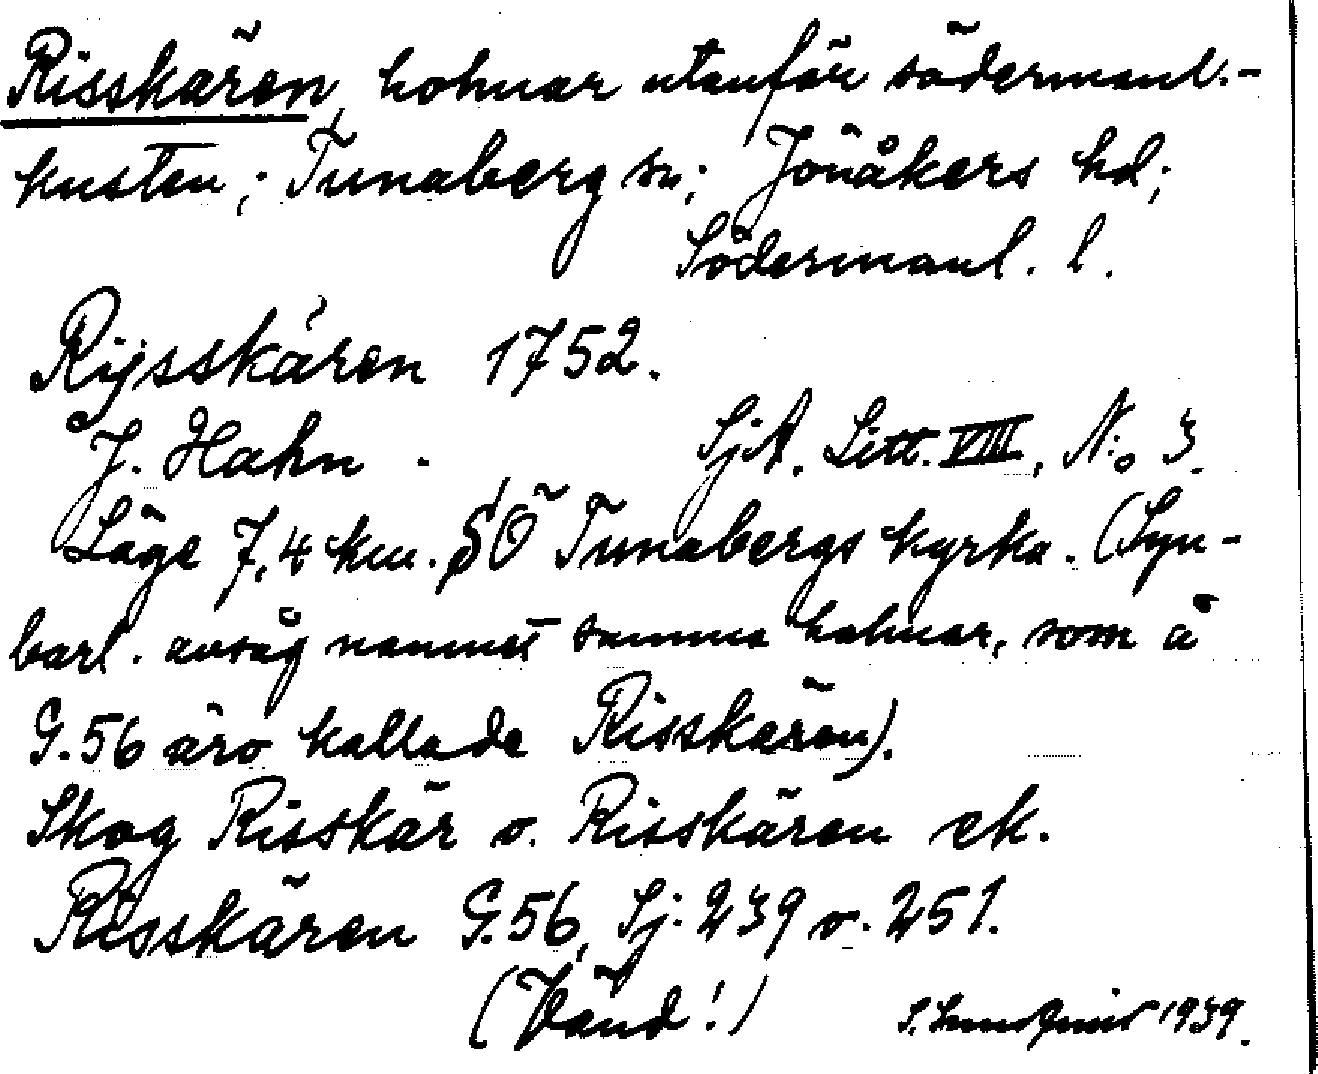 Risskären, holmar utanför södermanl.-
kusten; Tunaberg sn; Jönåkers hd;
Södermanl. l.
Rijsskären 1752.
J. Hahn. SjA. Litt. VIII, N:o 3.
Läge 7,4 km. SÖ Tunabergs kyrka. (Syn-
barl. avsåg namnet samma holmar, som å
G.56 äro kallade Risskären).
Skog Risskär o. Risskären ek.
Risskären G.56, Sj: 239 o. 251.
(Vänd!) 1939.